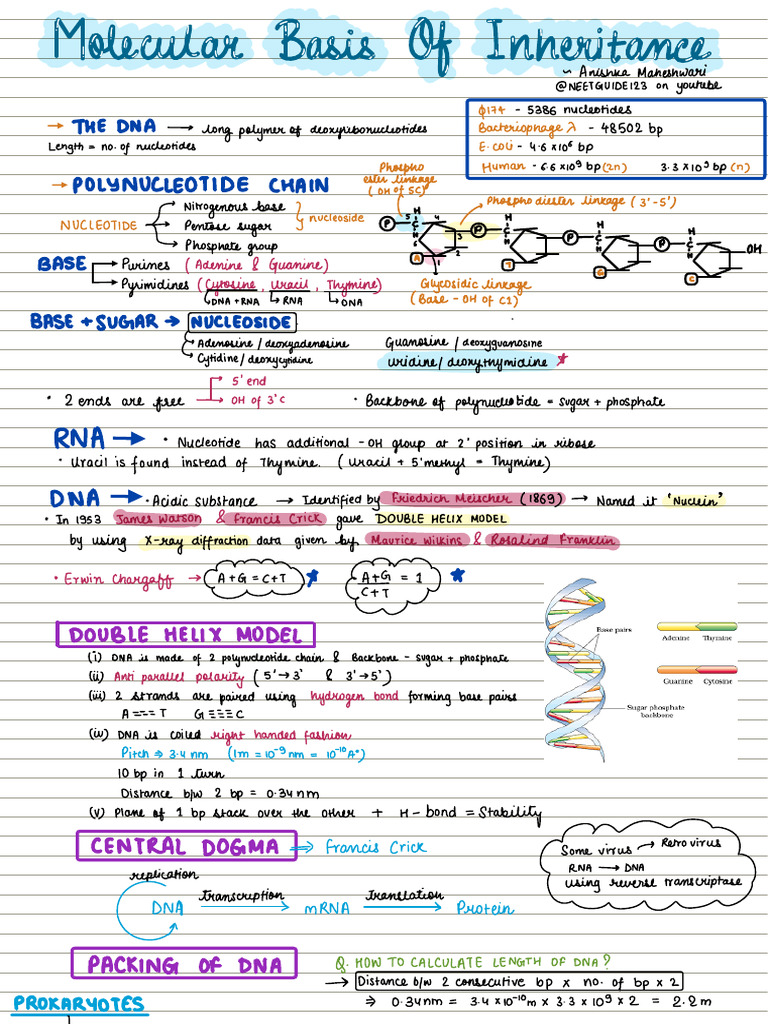 Molecular Basis Of Inheritance
~ Anishka Maheshwari
@NEETGUIDE123 on youtube
→ THE DNA → long polymer of deoxyribonucleotides
Length = no. of nucleotides
φ174 - 5386 nucleotides
Bacteriophage λ - 48502 bp
E.coli - 4.6 x 10⁶ bp
Human - 6.6 x 10⁹ bp (2n) 3.3 x 10⁹ bp (n)
→ POLYNUCLEOTIDE CHAIN
NUCLEOTIDE
Nitrogenous base
Pentose sugar
Phosphate group
nucleoside
Phospho
ester linkage
(OH of 5C)
Phosphodiester linkage (3'-5')
P H C H 5 4 3 2 1 6 A
P H C H T
P H C H G
P H C H C OH
Glycosidic linkage
(Base - OH of C1)
BASE
Purines (Adenine & Guanine)
Pyrimidines (Cytosine, Uracil, Thymine)
DNA + RNA RNA DNA
BASE + SUGAR → NUCLEOSIDE
Adenosine / deoxyadenosine Guanosine / deoxyguanosine
Cytidine / deoxycytidine uridine / deoxythymidine *
• 2 ends are free
5' end
OH of 3'C
• Backbone of polynucleotide = sugar + phosphate
RNA → • Nucleotide has additional -OH group at 2' position in ribose
• Uracil is found instead of Thymine. (Uracil + 5'methyl = Thymine)
DNA → • Acidic substance → Identified by Friedrich Meischer (1869) → Named it 'Nuclein'
• In 1953 James Watson & Francis Crick gave DOUBLE HELIX MODEL
by using X-ray diffraction data given by Maurice Wilkins & Rosalind Franklin
• Erwin Chargaff → A+G = C+T ★ A+G = 1 ★
C+T
DOUBLE HELIX MODEL
(i) DNA is made of 2 polynucleotide chain & Backbone - sugar + phosphate
(ii) Anti parallel polarity (5'→3' & 3'→5')
(iii) 2 strands are paired using hydrogen bond forming base pairs
A === T G ≡≡≡ C
(iv) DNA is coiled right handed fashion
Pitch ⇒ 3.4 nm (1m = 10⁻⁹ nm = 10⁻¹⁰ A°)
10 bp in 1 turn
Distance b/w 2 bp = 0.34 nm
(v) Plane of 1 bp stack over the other + H-bond = Stability
Base pairs
Adenine Thymine
Guanine Cytosine
Sugar phosphate
backbone
CENTRAL DOGMA ⇒ Francis Crick
replication
DNA transcription → mRNA translation → Protein
Some virus → Retrovirus
RNA → DNA
using reverse transcriptase
PACKING OF DNA
Q. HOW TO CALCULATE LENGTH OF DNA?
→ Distance b/w 2 consecutive bp x no. of bp x 2
⇒ 0.34nm = 3.4 x 10⁻¹⁰ m x 3.3 x 10⁹ x 2 = 2.2 m
PROKARYOTES